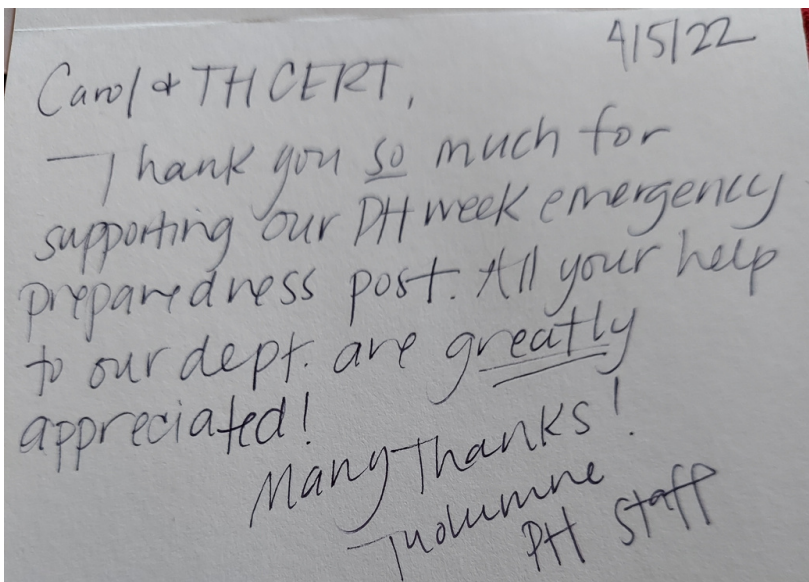 4/5/22
Carol & TH CERT,
Thank you so much for
supporting our PH week emergency
preparedness post. All your help
to our dept. are greatly
appreciated!
Many Thanks!
Tuolumne
PH Staff